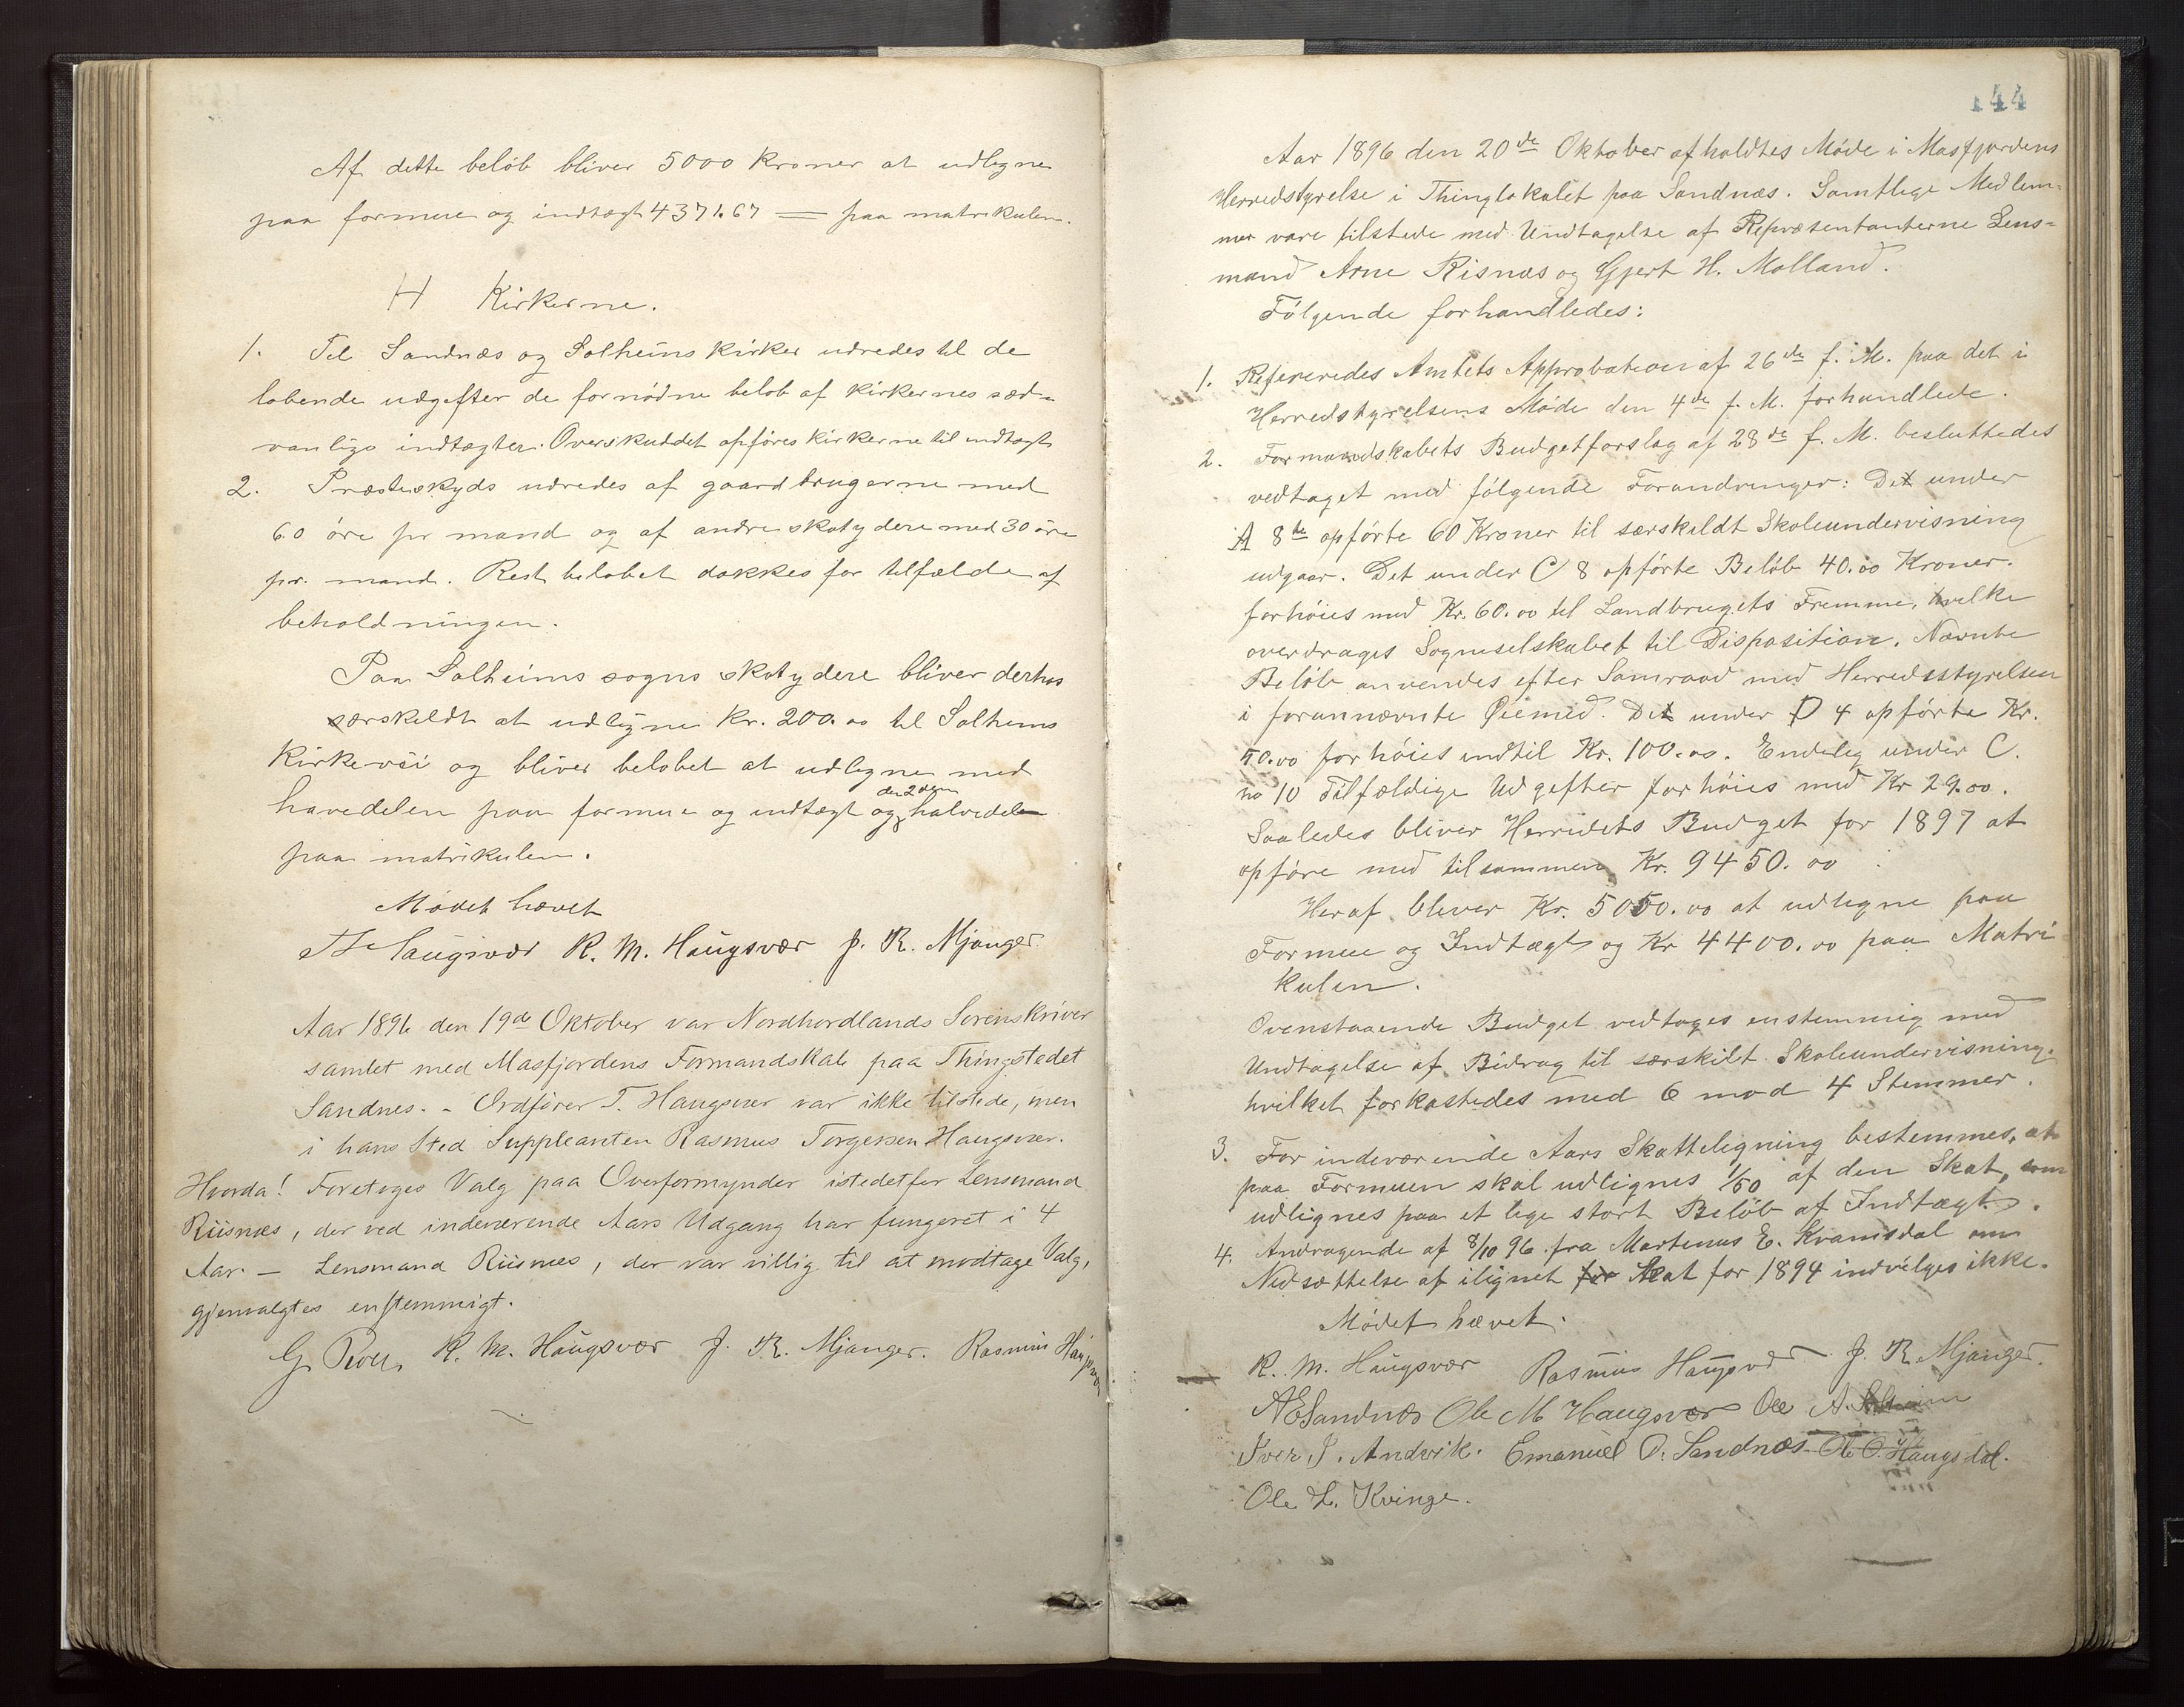 Af dette beløb bliver 5000 kroner at udligne
paa formue og indtægt 4371.67 = paa matrikulen.
H Kirkerne.
1. Til Sandnæs og Solheims kirker udredes til de
løbende udgifter de fornødne beløb af kirkernes sæd-
vanlige indtægter. Overskuddet opføres kirkerne til indtægt
2. Præsteskyds udredes af gaardbrugerne med
60 øre pr mand og af andre skatydere med 30 øre
pr. mand. Rest beløbet dækkes for tilfælde af
beholdningen.
Paa Solheims sogns skatydere bliver derhos
særskildt at udligne Kr. 200.00 til Solheims
Kirkevei og bliver beløbet at udligne med
den 2den
havedelen paa formue og indtægt og halvedelen
paa matrikulen.
Mødet hævet
T Haugsvær R. M. Haugsvær J. R. Mjanger.
Aar 1896 den 19de Oktober var Nordhordlands Sorenskriver
samlet med Masfjordens Formandskab paa Thingstedet
Sandnes. - Ordfører T. Haugsvær var ikke tilstede, men
i hans Sted Suppleanten Rasmus Torgersen Haugsvær.
Hvorda! Foretoges Valg paa Overformynder istedetfor Lensmand
Riisnæs, der ved indeværende Aars Udgang har fungeret i 4
Aar. - Lensmand Riisnæs, der var villig til at modtage Valg,
gjenvalgtes enstemmigt.
G. R. M. Haugsvær J. R. Mjanger. Rasmus Haugsvær
144
Aar 1896 den 20de Oktober afholdtes Møde i Masfjordens
Herredstyrelse i Thinglokalet paa Sandnæs. Samtlige Medlem-
mer vare tilstede med Undtagelse af Repræsentanterne Lens-
mand Arne Risnæs og Gjert H. Molland.
Følgende forhandledes:
1. Refereredes Amtets Approbation af 26de f. M. paa det i
Herredstyrelsens Møde den 4de f. M. forhandlede.
2. Formandskabets Budgetforslag af 28de f. M. besluttedes
vedtaget med følgende Forandringer: Det under
A 8de opførte 60 Kroner til særskildt Skoleundervisning
udgaar. Det under C 8 opførte Beløb 40.00 Kroner.
forhøies med Kr. 60.00 til Landbrugets Fremme, hvilke
overdrages Sogneselskabet til Disposition. Nævnte
Beløb anvendes efter Samraad med Herredsstyrelsen
i forannævnte Øiemed. Det under D 4 opførte Kr.
50.00 forhøies indtil Kr. 100.00. Endelig under C.
no 10 Tilfældige Udgifter forhøies med Kr 29.00.
Saaledes bliver Herredets Budget for 1897 at
opføre med tilsammen Kr. 9450.00
Heraf bliver Kr. 5050.00 at udligne paa
Formue og Indtægt og Kr 4400.00 paa Matri
kulen.
Ovenstaaende Budget vedtoges enstemmig med
Undtagelse af Bidrag til særskilt Skoleundervisning.
hvilket forkastedes med 6 mod 4 Stemmer.
3. For indeværende Aars Skatteligning bestemmes, at
paa Formuen skal udlignes 1/50 af den Skat, som
udlignes paa et lige stort Beløb af Indtægt.
4. Andragende af 8/10 96 fra Martinus E. Kvamsdal om
Nedsættelse af ilignet for Skat for 1894 indvilges ikke.
Mødet hævet.
R. M. Haugsvær Rasmus Haugsvær J. R. Mjanger.
A E Sandnæs Ole M Haugsvær Ole A. Solheim
Iver J. Andvik. Emanuel O. Sandnæs Ole O. Haugsdal.
Ole L. Kvinge.